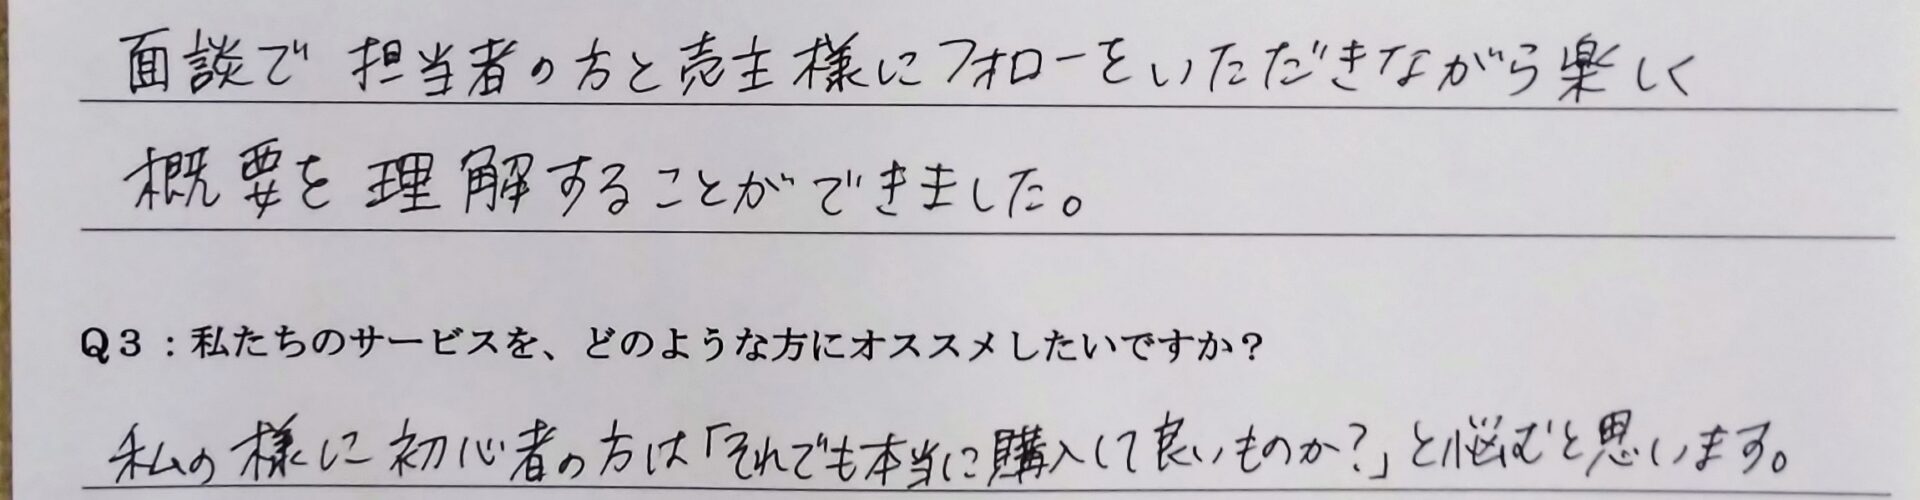 面談で担当者の方と売主様にフォローをいただきながら楽しく
概要を理解することができました。
Q3：私たちのサービスを、どのような方にオススメしたいですか？
私の様に初心者の方は「それでも本当に購入して良いものか？」と悩むと思います。